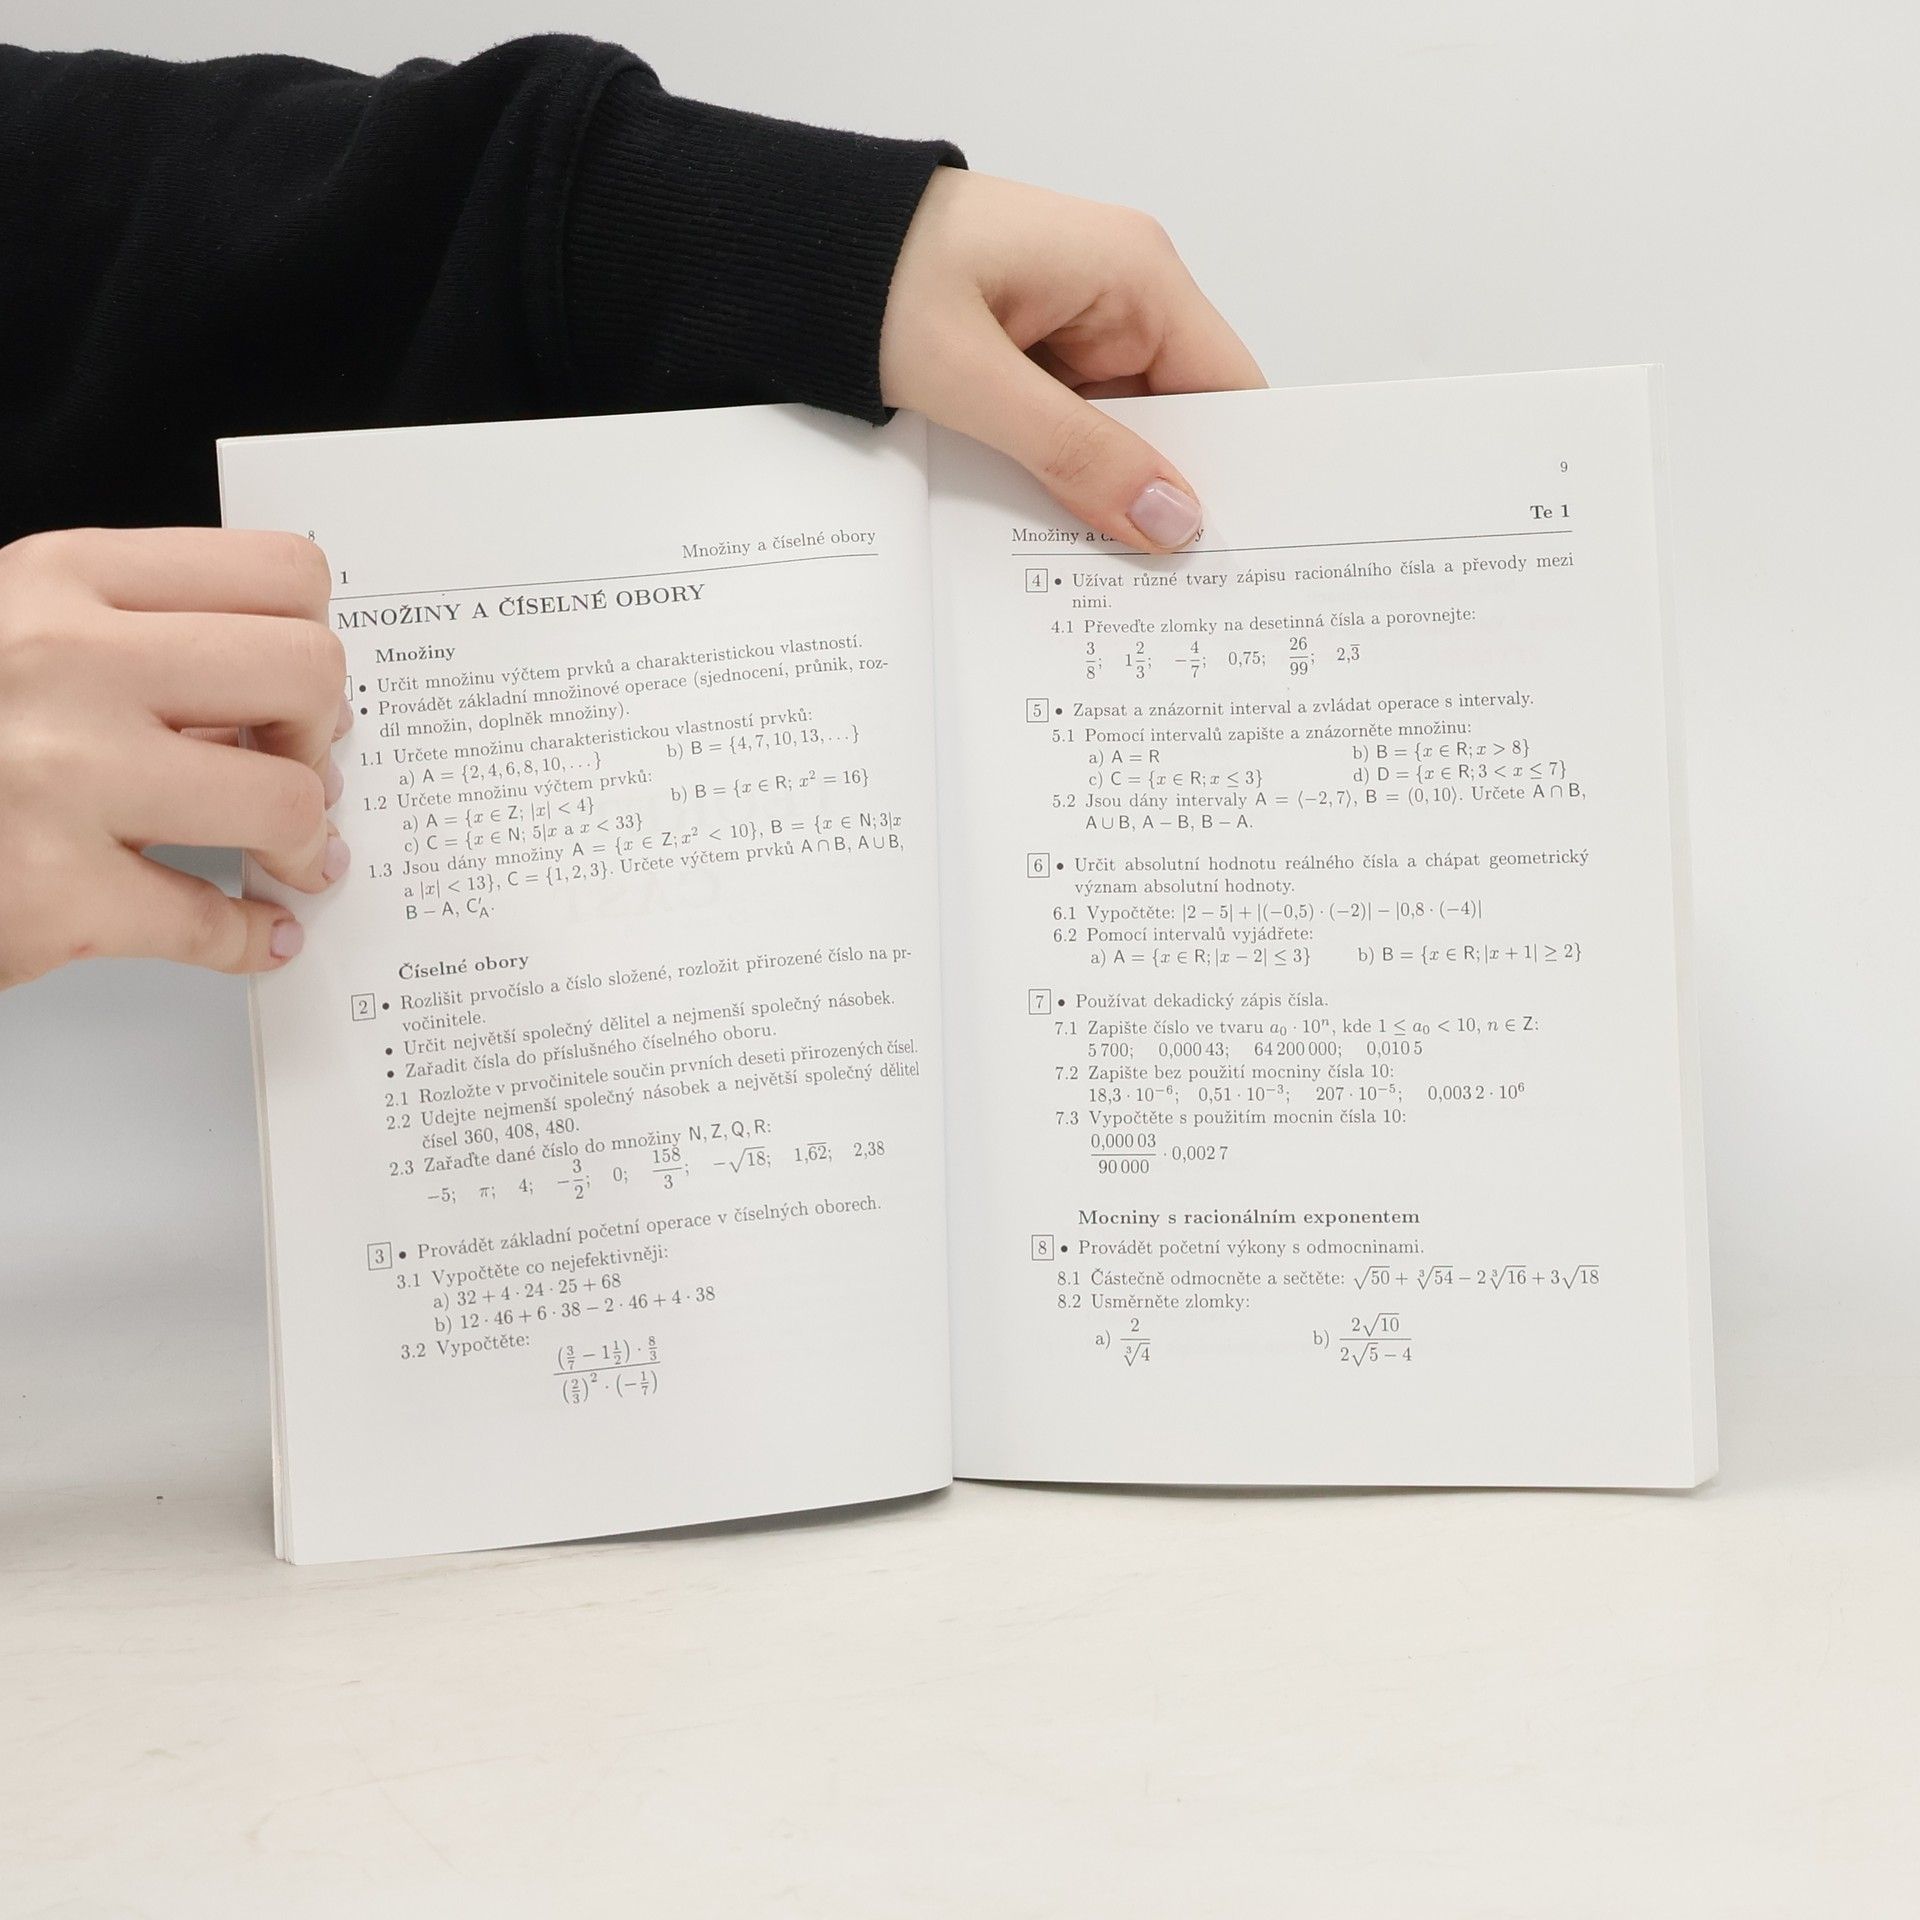 8
Množiny a číselné obory
1
MNOŽINY A ČÍSELNÉ OBORY
Množiny
• Určit množinu výčtem prvků a charakteristickou vlastností.
• Provádět základní množinové operace (sjednocení, průnik, roz-
díl množin, doplněk množiny).
1.1 Určete množinu charakteristickou vlastností prvků:
a) A = {2, 4, 6, 8, 10, . . . } b) B = {4, 7, 10, 13, . . . }
1.2 Určete množinu výčtem prvků:
a) A = {x ∈ Z; |x| < 4} b) B = {x ∈ R; x² = 16}
c) C = {x ∈ N; 5|x a x < 33}
1.3 Jsou dány množiny A = {x ∈ Z; x² < 10}, B = {x ∈ N; 3|x
a |x| < 13}, C = {1, 2, 3}. Určete výčtem prvků A ∩ B, A ∪ B,
B − A, C′_A.
Číselné obory
2 • Rozlišit prvočíslo a číslo složené, rozložit přirozené číslo na pr-
vočinitele.
• Určit největší společný dělitel a nejmenší společný násobek.
• Zařadit čísla do příslušného číselného oboru.
2.1 Rozložte v prvočinitele součin prvních deseti přirozených čísel.
2.2 Udejte nejmenší společný násobek a největší společný dělitel
čísel 360, 408, 480.
2.3 Zařaďte dané číslo do množiny N, Z, Q, R:
−5; π; 4; −3/2; 0; 158/3; −√18; 1,6̅2̅; 2,38
3 • Provádět základní početní operace v číselných oborech.
3.1 Vypočtěte co nejefektivněji:
a) 32 + 4 · 24 · 25 + 68
b) 12 · 46 + 6 · 38 − 2 · 46 + 4 · 38
3.2 Vypočtěte:
(3/7 − 1 1/2) · 8/3
(2/3)² · (−1/7)
9
Te 1
Množiny a
4 • Užívat různé tvary zápisu racionálního čísla a převody mezi
nimi.
4.1 Převeďte zlomky na desetinná čísla a porovnejte:
3/8; 1 2/3; −4/7; 0,75; 26/99; 2,3̅
5 • Zapsat a znázornit interval a zvládat operace s intervaly.
5.1 Pomocí intervalů zapište a znázorněte množinu:
a) A = R b) B = {x ∈ R; x > 8}
c) C = {x ∈ R; x ≤ 3} d) D = {x ∈ R; 3 < x ≤ 7}
5.2 Jsou dány intervaly A = ⟨−2, 7⟩, B = (0, 10⟩. Určete A ∩ B,
A ∪ B, A − B, B − A.
6 • Určit absolutní hodnotu reálného čísla a chápat geometrický
význam absolutní hodnoty.
6.1 Vypočtěte: |2 − 5| + |(−0,5) · (−2)| − |0,8 · (−4)|
6.2 Pomocí intervalů vyjádřete:
a) A = {x ∈ R; |x − 2| ≤ 3} b) B = {x ∈ R; |x + 1| ≥ 2}
7 • Používat dekadický zápis čísla.
7.1 Zapište číslo ve tvaru a₀ · 10ⁿ, kde 1 ≤ a₀ < 10, n ∈ Z:
5 700; 0,000 43; 64 200 000; 0,010 5
7.2 Zapište bez použití mocniny čísla 10:
18,3 · 10⁻⁶; 0,51 · 10⁻³; 207 · 10⁻⁵; 0,003 2 · 10⁶
7.3 Vypočtěte s použitím mocnin čísla 10:
0,000 03/90 000 · 0,002 7
Mocniny s racionálním exponentem
8 • Provádět početní výkony s odmocninami.
8.1 Částečně odmocněte a sečtěte: √50 + ∛54 − 2∛16 + 3√18
8.2 Usměrněte zlomky:
a) 2/∛4 b) 2√10/(2√5 − 4)